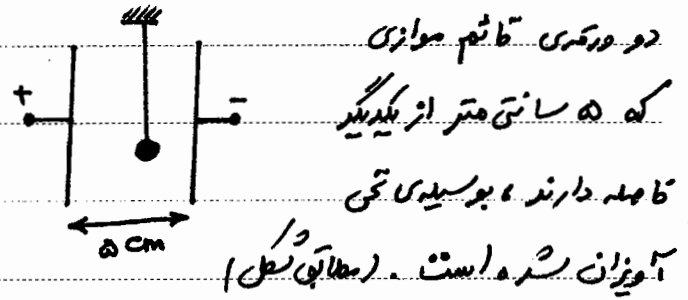 دو ورقه‌ی قائم موازی
که ۵ سانتی متر از یکدیگر
فاصله دارند، بوسیله‌ی نخی
آویزان شده است. (مطابق شکل)
+
-
۵ cm